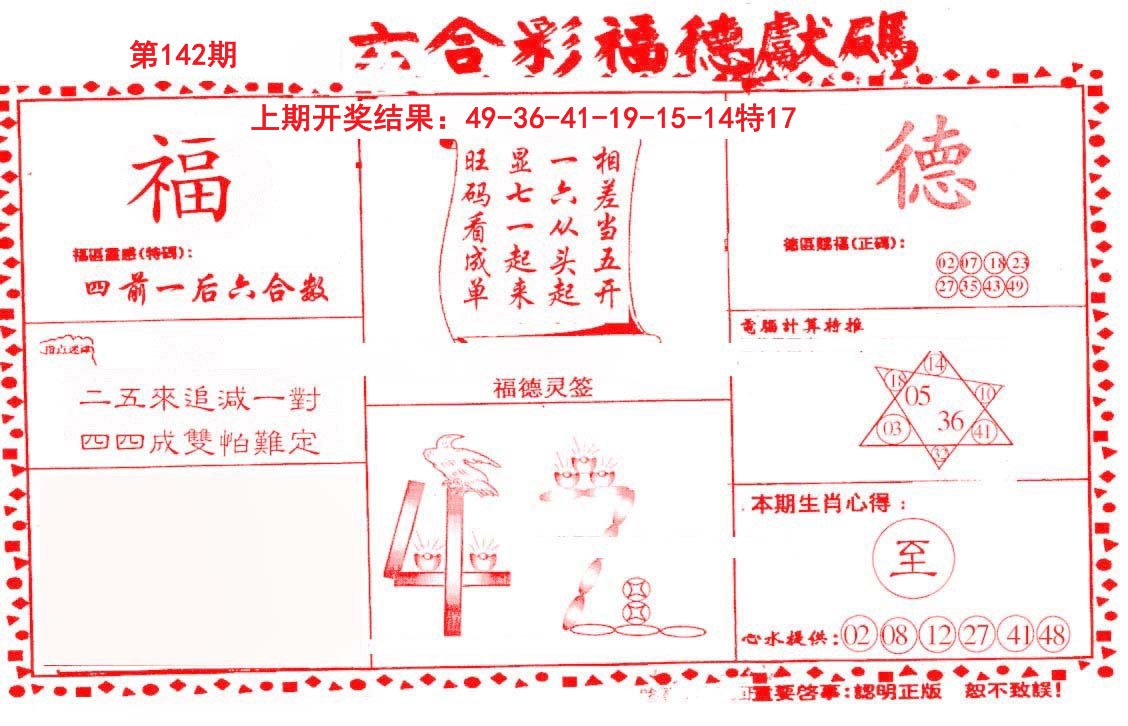 第142期
六合彩福德獻碼
上期开奖结果：49-36-41-19-15-14特17
福
福區靈感(特碼)：
四前一后六合数
二五來追减一對
四四成雙怕難定
相差当五开
一六从头起
显七一起来
旺码看成单
福德灵签
42
德
德區賜福(正碼)：
02 07 18 23
27 35 43 49
電腦計算特推
14
18 10
05
36
03 41
32
本期生肖心得：
至
心水提供：02 08 12 27 41 48
重要啓事：認明正版 恕不致誤！